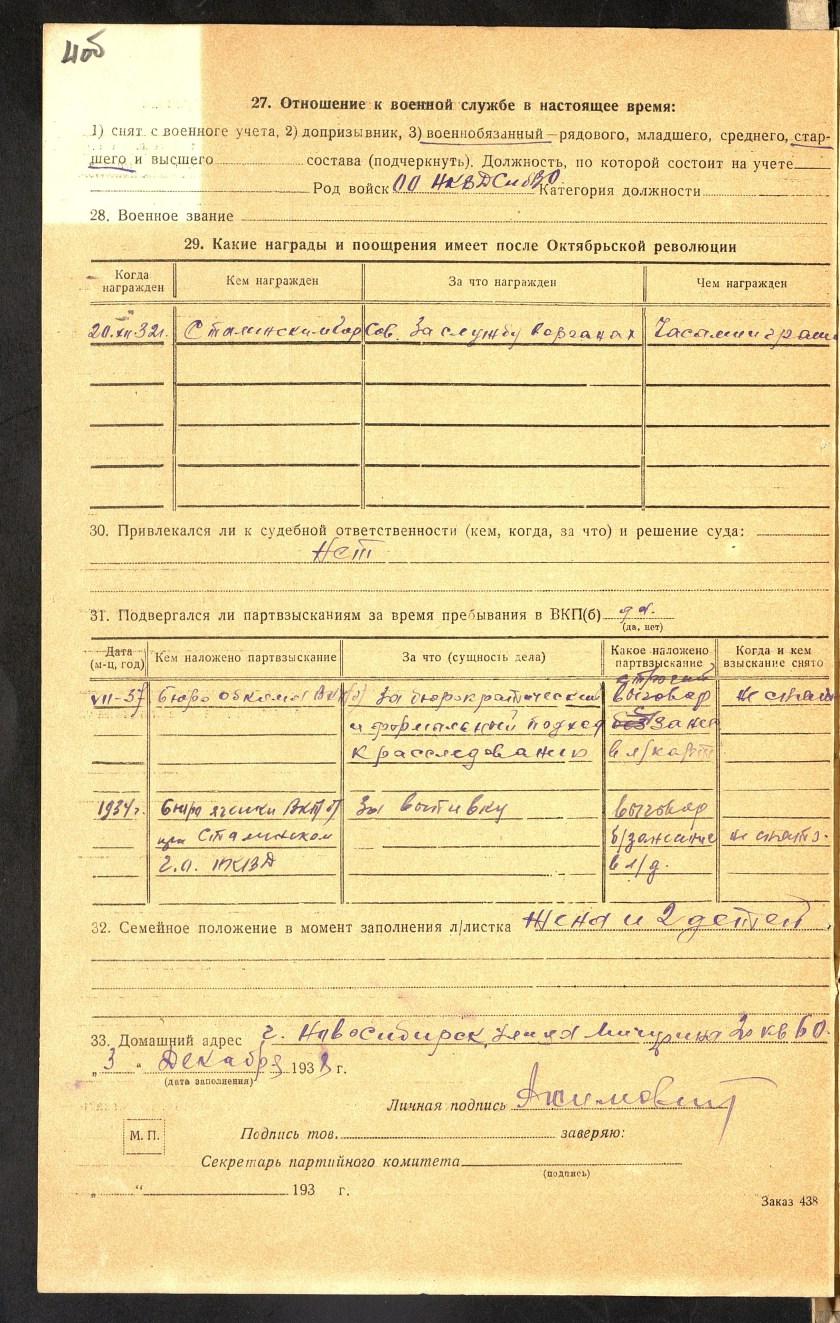 4об
27. Отношение к военной службе в настоящее время:
1) снят с военного учета, 2) допризывник, 3) военнообязанный—рядового, младшего, среднего, стар-
шего и высшего состава (подчеркнуть). Должность, по которой состоит на учете
Род войск ОО НКВД СибВО Категория должности
28. Военное звание
29. Какие награды и поощрения имеет после Октябрьской революции
Когда награжден Кем награжден За что награжден Чем награжден
20.XII 32г. Сталинским Гор Сов. За службу в органах Часами и грам
30. Привлекался ли к судебной ответственности (кем, когда, за что) и решение суда:
Нет
31. Подвергался ли партвзысканиям за время пребывания в ВКП(б) да.
(да, нет)
Дата (м-ц, год) Кем наложено партвзыскание За что (сущность дела) Какое наложено партвзыскание Когда и кем взыскание снято
строгий
VII-37 Бюро обкома ВКП(б) За бюрократический выговор не снят
и формальный подход с зане
к расследованию в л/карт
1934г. Бюро ячейки ВКП(б) За выпивку выговор
при Сталинском б/занесение не снято.
г.о. НКВД в л/д.
32. Семейное положение в момент заполнения л/листка Жена и 2 детей.
33. Домашний адрес г. Новосибирск, улица Мичурина 2 кв 60.
„3“ Декабря 1938 г.
(дата заполнения)
Личная подпись
М. П. Подпись тов. заверяю:
Секретарь партийного комитета
(подпись)
„ “ 193 г.
Заказ 438